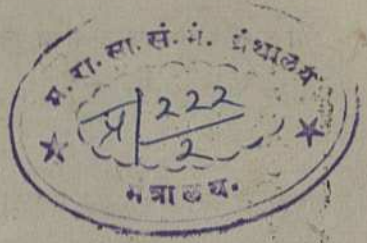 म. रा. सा. सं. मं. ग्रंथालय
प्र 222
2
मंत्रालय.